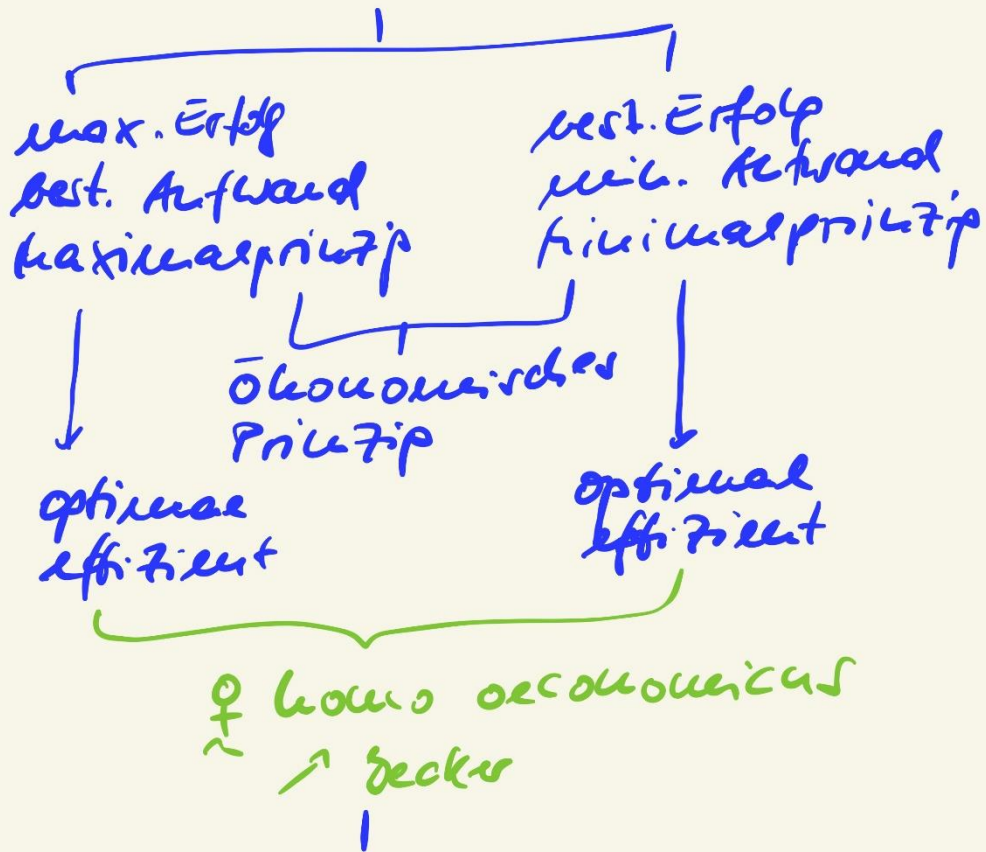 max. Erfolg
best. Aufwand
Maximalprinzip
best. Erfolg
min. Aufwand
Minimalprinzip
Ökonomisches
Prinzip
optimal
effizient
optimal
effizient
♀ homo oeconomicus
↗ Becker